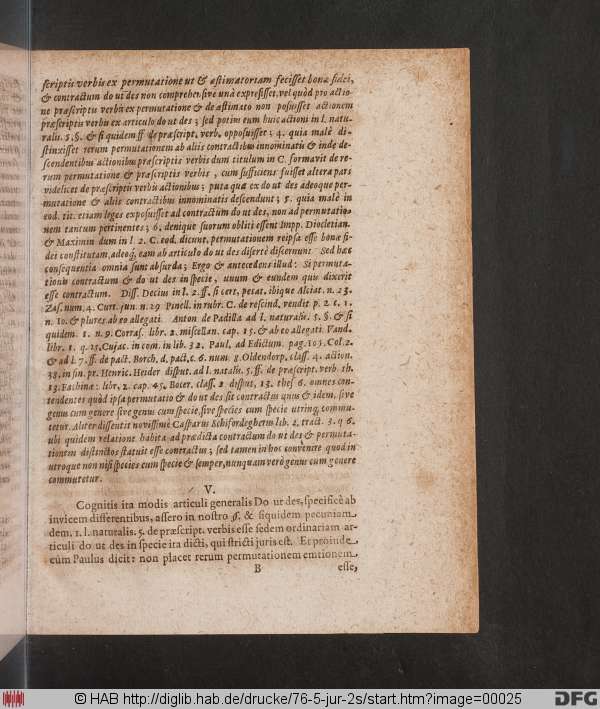 scriptis verbis ex permutatione ut & æstimatoriam fecisset bonæ fidei,
& contractum do ut des non comprehensive unà expressisset, vel quòd pro actio
ne præscriptis verbis ex permutatione & de æstimato non posuisset actionem
præscriptis verbis ex articulo do ut des; sed potius eum huic actioni in l. natu-
ralis. 5. §. & si quidem ff de præscript. verb. opposuisset; 4. quia malè di-
stinxisset rerum permutationem ab aliis contractibus innominatis & inde de-
scendentibus actionibus præscriptis verbis dum titulum in C. formavit de re-
rum permutatione & præscriptis verbis, cum sufficiens fuisset altera pars
videlicet de præscriptis verbis actionibus; puta quæ ex do ut des adeoque per-
mutatione & aliis contractibus innominatis descendunt; 5. quia malè in
eod. tit. etiam leges exposuisset ad contractum do ut des, non ad permutatio-
nem tantum pertinentes; 6. denique suorum obliti essent Impp. Diocletian.
& Maximin dum in l. 2. C. eod. dicunt, permutationem reipsa esse bonæ fi-
dei constitutam, adeoq; eam ab articulo do ut des disertè discernunt. Sed hæc
consequentia omnia sunt absurda; Ergo & antecedens illud: Si permuta-
tionis contractum & do ut des in specie, unum & eundem quis dixerit
esse contractum. Diss. Decius in l. 2. ff. si cert. petat. ibique Alciat. n. 23.
Zas. num. 4. Curt. jun. n. 29 Pinell. in rubr. C. de rescind. vendit p. 2. c. 1.
n. 10. & plures ab eo allegati. Anton de Padilla ad l. naturalis. 5. §. & si
quidem. 1. n. 9. Corras. libr. 2. miscellan. cap. 15. & ab eo allegati. Vand.
libr. 1. q. 25. Cujac. in com. in lib. 32. Paul. ad Edictum. pag. 103. Col. 2.
& ad l. 7. ff. de pact. Borch. d. pact. c. 6. num. 8. Oldendorp. class. 4. action.
38. in fin. pr. Henric. Heider disput. ad l. natalis. 5. ff. de præscript. verb. th.
13. Fachinæ: libr. 2. cap. 45. Bocer. class. 2 disput. 13. thes 6. omnes con-
tendentes quòd ipsa permutatio & do ut des sit contractus unus & idem, sive
genus cum genere sive genus cum specie, sive species cum specie utrinq; commu-
tetur. Aliter dissentit novissimè Casparus Schifordegherus lib. 2. tract. 3. q 6.
ubi quidem relatione habita ad prædicta contractum do ut des & permuta-
tionem distinctos statuit esse contractus; sed tamen in hoc convenire quod in
utroque non nisi species cum specie & semper, nunquam verò genus cum genere
commutetur.
V.
Cognitis ita modis articuli generalis Do ut des, specificè ab
invicem differentibus, assero in nostro ff. & siquidem pecuniam
dem. 1. l. naturalis. 5. de præscript. verbis esse sedem ordinariam ar-
ticuli do ut des in specie ita dicti, qui stricti juris est. Et proinde
cùm Paulus dicit: non placet rerum permutationem emtionem
B esse,
© HAB http://diglib.hab.de/drucke/76-5-jur-2s/start.htm?image=00025
DFG